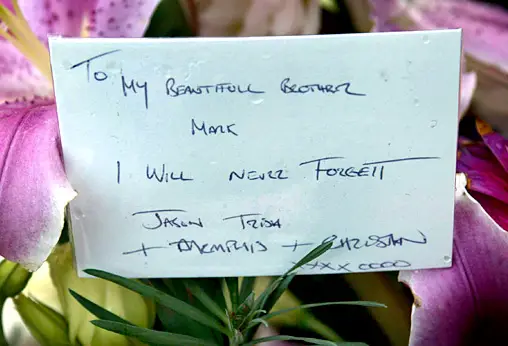 To My Beautifull Brother
Mark
I Will Never Forgett
Jason Trish
+ Memphis + Christian
xxxx oooo